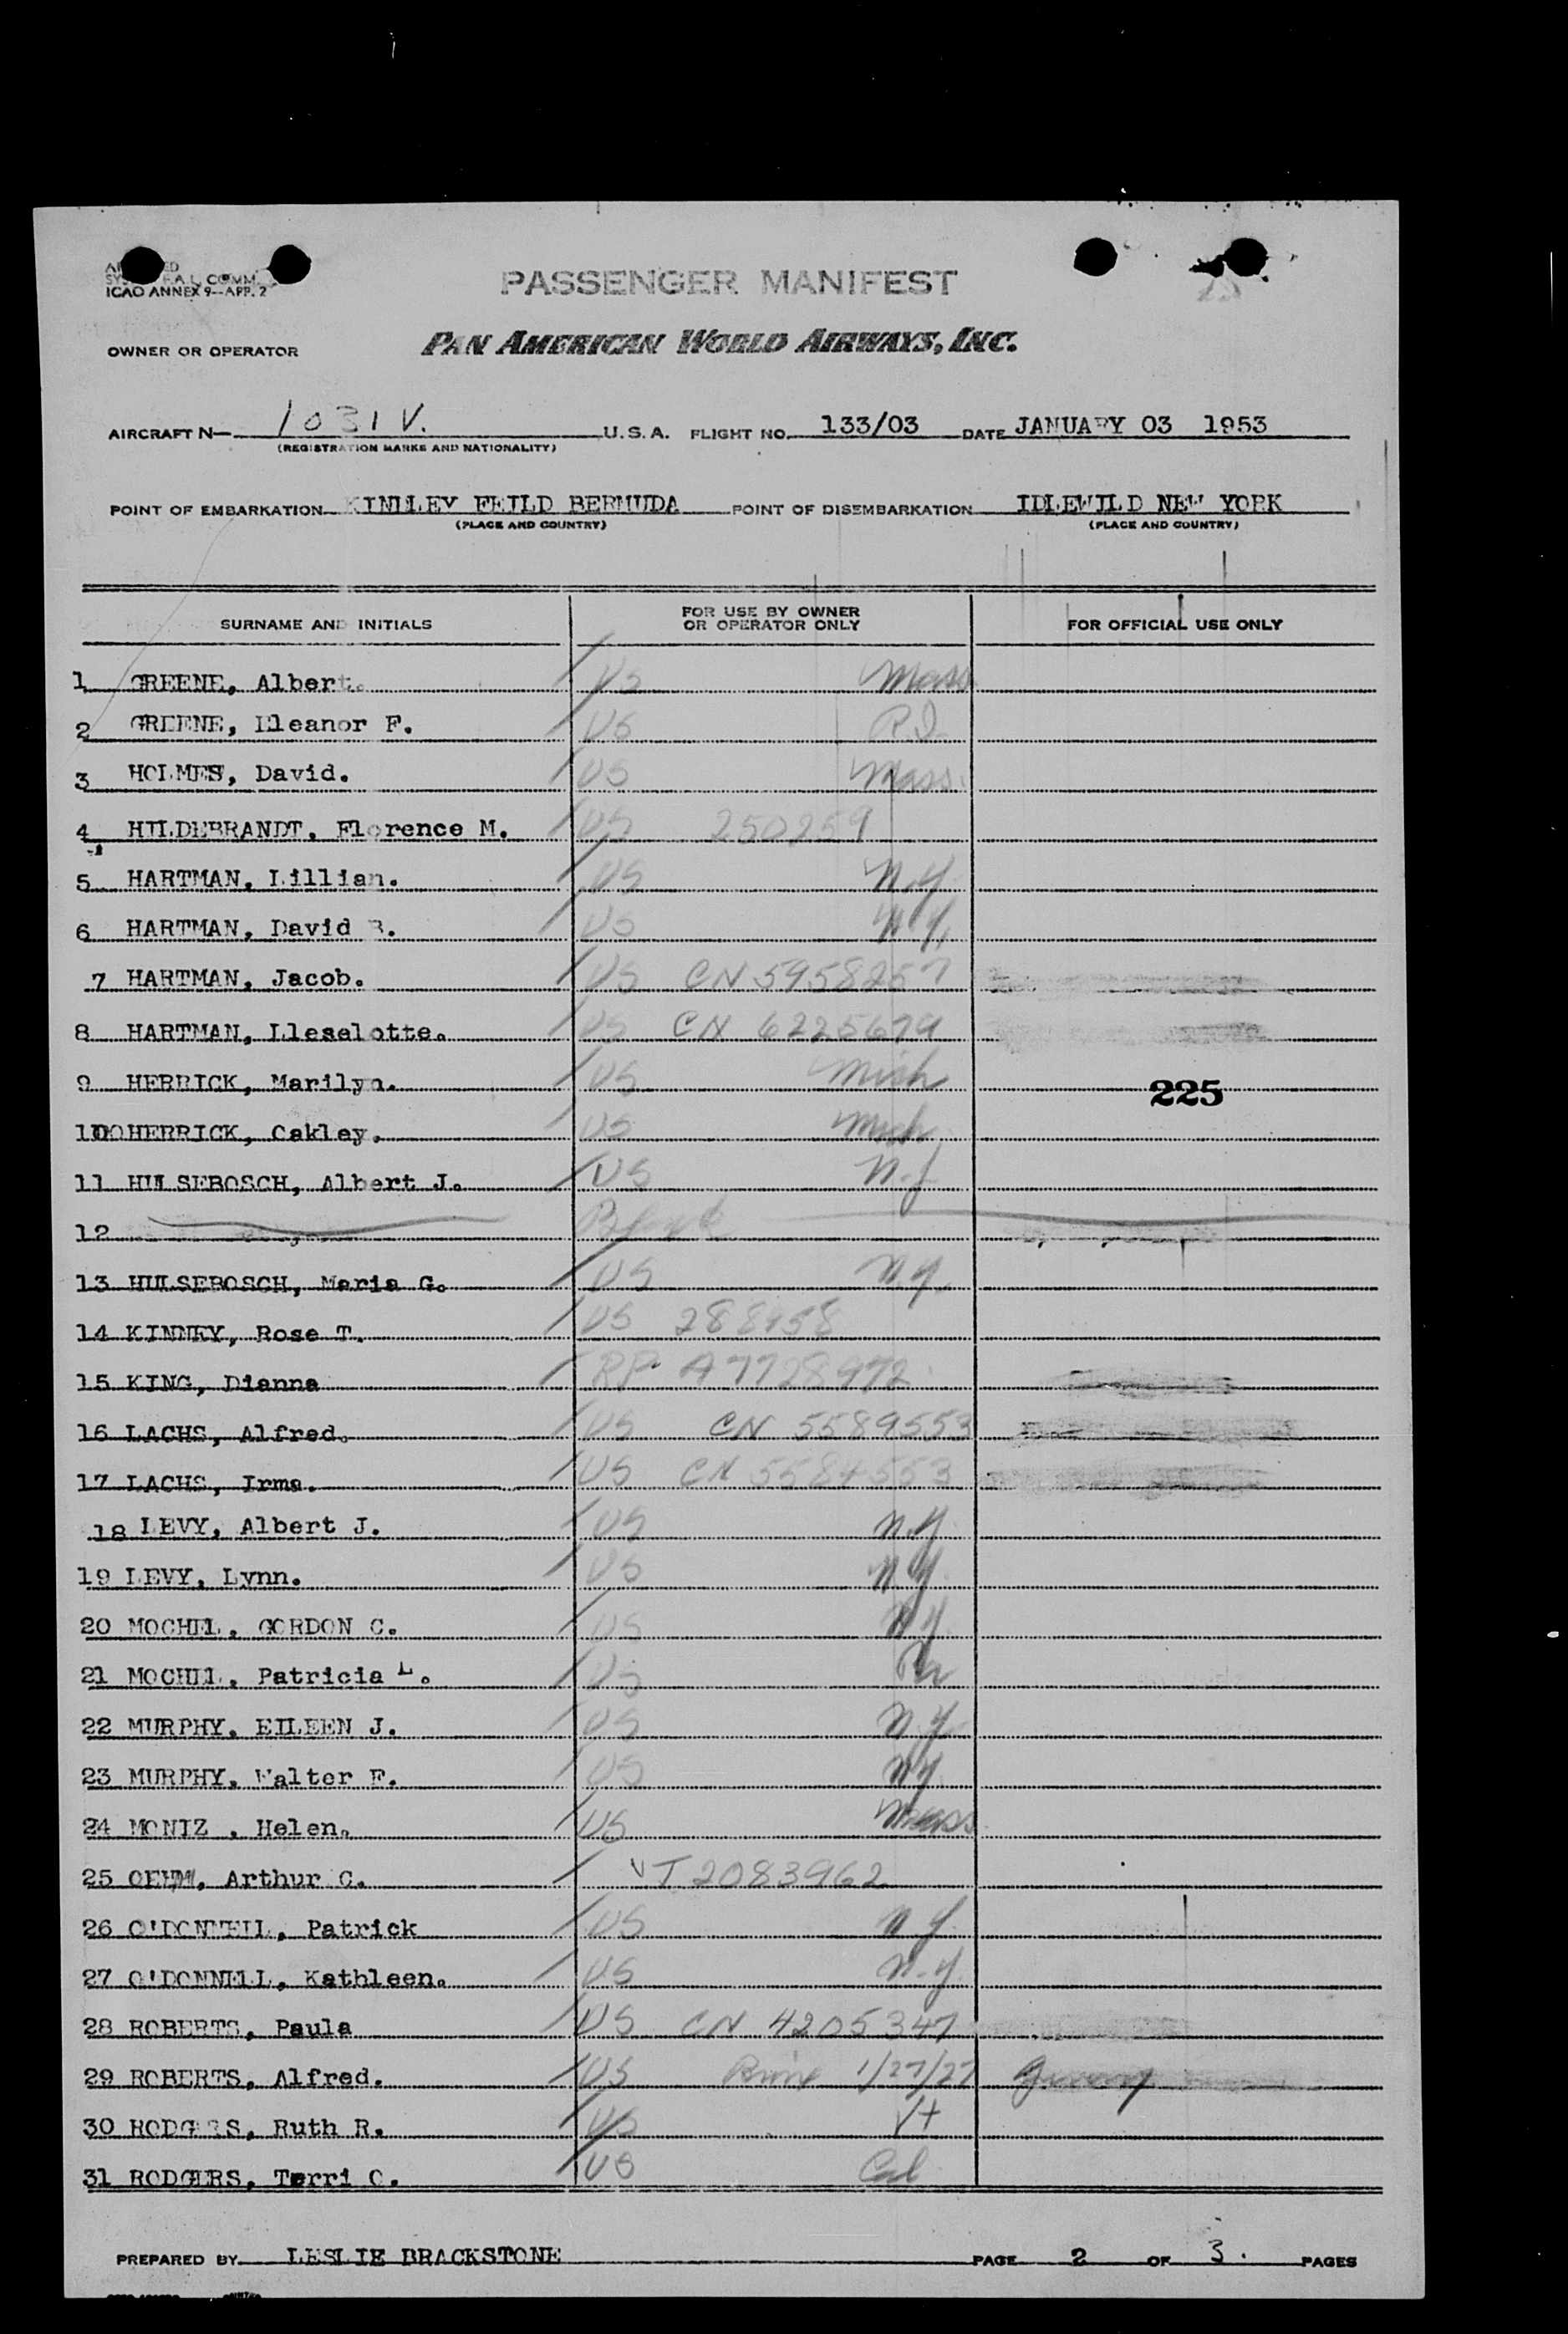 ICAO ANNEX 9—APP. 2
PASSENGER MANIFEST
OWNER OR OPERATOR PAN AMERICAN WORLD AIRWAYS, INC.
AIRCRAFT N— 1031V. U.S.A. FLIGHT NO. 133/03 DATE JANUARY 03 1953
(REGISTRATION MARKS AND NATIONALITY)
POINT OF EMBARKATION KINDLEY FEILD BERMUDA POINT OF DISEMBARKATION IDLEWILD NEW YORK
(PLACE AND COUNTRY) (PLACE AND COUNTRY)
SURNAME AND INITIALS FOR USE BY OWNER OR OPERATOR ONLY FOR OFFICIAL USE ONLY
1 GREENE, Albert. US Mass
2 GREENE, Eleanor F. US R.I.
3 HOLMES, David. US Mass.
4 HILDEBRANDT, Florence M. US 250259
5 HARTMAN, Lillian. US N.Y
6 HARTMAN, David B. US N.Y.
7 HARTMAN, Jacob. US CN 5958257
8 HARTMAN, Lleselotte. US CN 6225679
9 HERRICK, Marilyn. US Mich
10 HERRICK, Oakley. US Mich
225
11 HULSEBOSCH, Albert J. US N.J
12 Blank
13 HULSEBOSCH, Maria G. US N.Y.
14 KINNEY, Rose T. US 288958
15 KING, Dianna RP A7728972
16 LACHS, Alfred. US CN 5589553
17 LACHS, Irma. US CN 5584553
18 LEVY, Albert J. US N.Y
19 LEVY, Lynn. US N.Y.
20 MOCHEL, GORDON C. US N.Y.
21 MOCHEL, Patricia L. US Pa
22 MURPHY, EILEEN J. US N.Y
23 MURPHY, Walter F. US N.Y.
24 MONIZ , Helen. US Mass
25 OEHM, Arthur C. VT 2083962
26 O'DONNELL, Patrick US N.Y.
27 O'DONNELL, Kathleen. US N.Y.
28 ROBERTS, Paula US CN 4205347
29 ROBERTS, Alfred. US 1/27/27
30 RODGERS, Ruth R. US Vt
31 RODGERS, Terri C. US Cal
PREPARED BY LESLIE BRACKSTONE PAGE 2 OF 3. PAGES